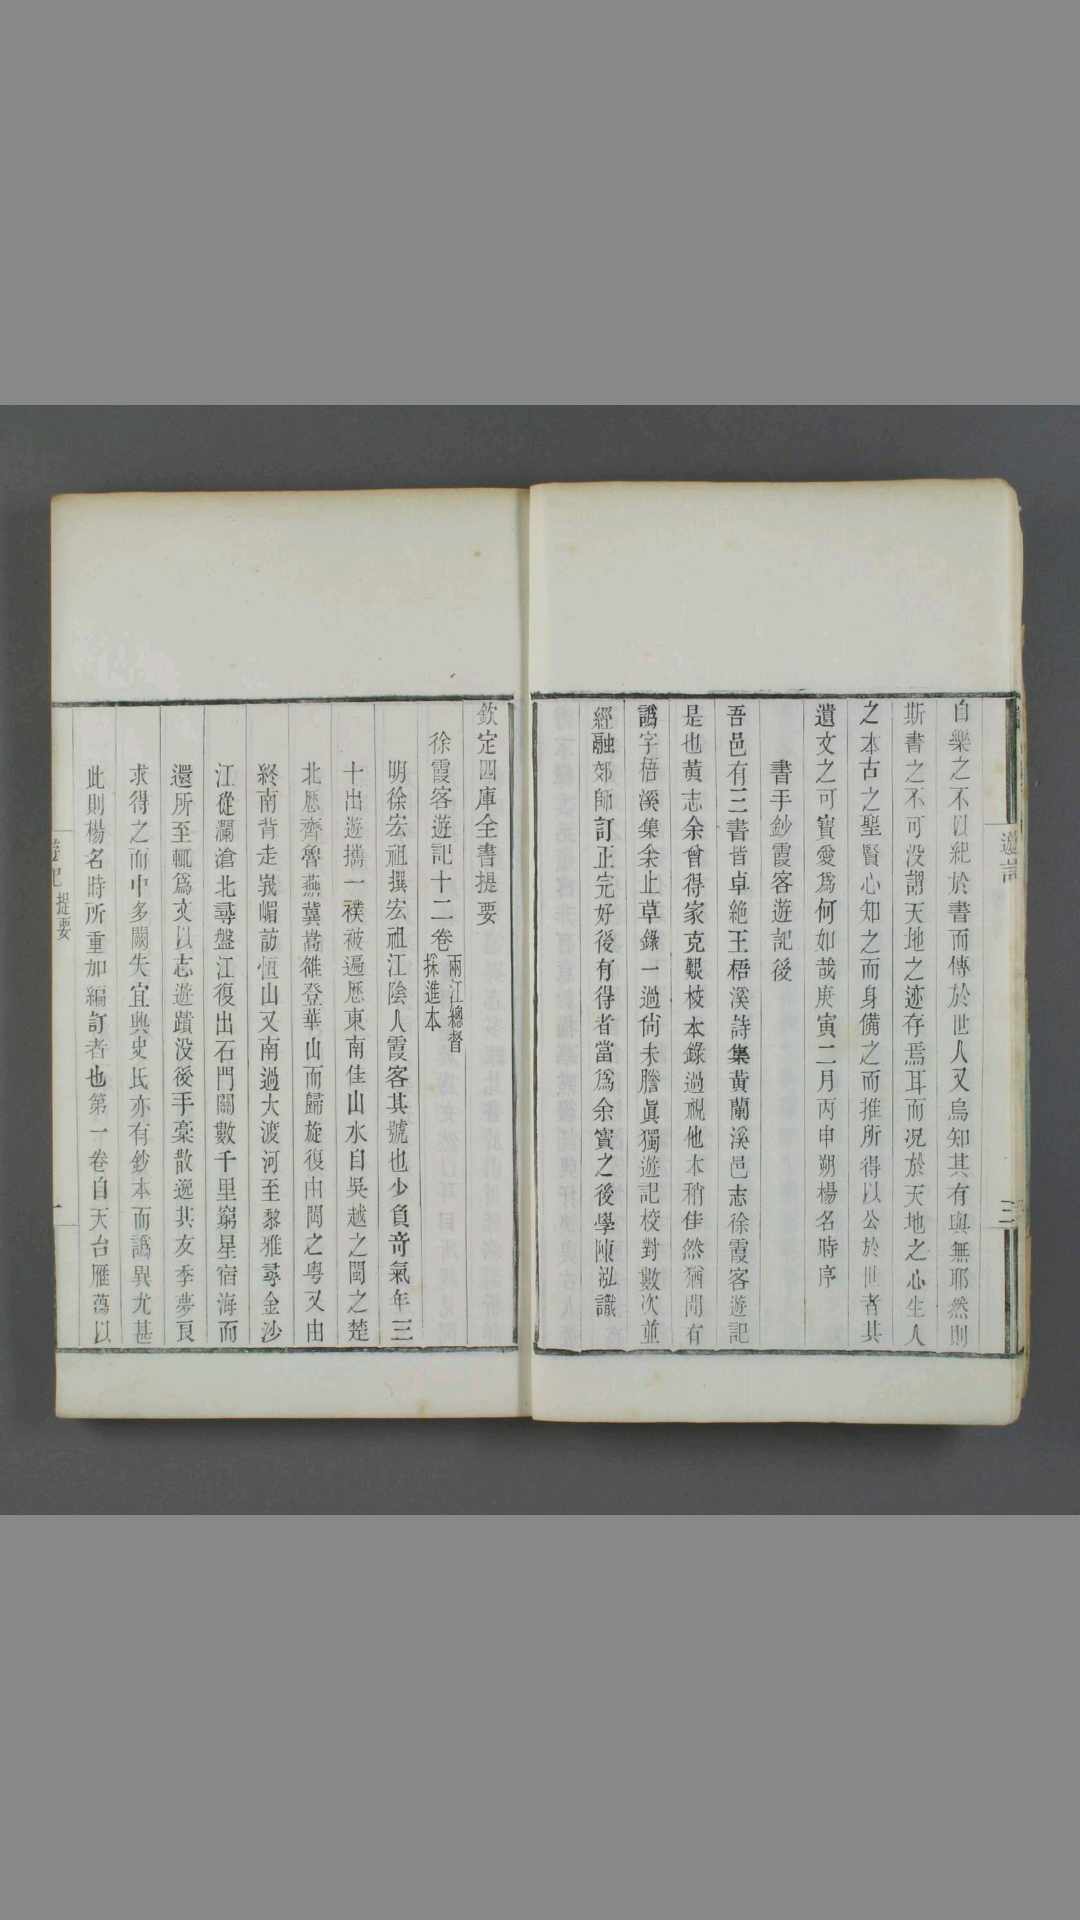 遊記
三
自樂之不以紀於書而傳於世人又烏知其有與無耶然則
斯書之不可没謂天地之迹存焉耳而况於天地之心生人
之本古之聖賢心知之而身備之而推所得以公於世者其
遺文之可寶愛爲何如哉庚寅二月丙申朔楊名時序
書手鈔霞客遊記後
吾邑有三書皆卓絶王梧溪詩集黃蘭溪邑志徐霞客遊記
是也黃志余曾得家克艱校本錄過視他本稍佳然猶間有
譌字梧溪集余止草錄一過尙未謄眞獨遊記校對數次並
經融郊師訂正完好後有得者當爲余寶之後學陳泓識
欽定四庫全書提要
徐霞客遊記十二卷 兩江總督
採進本
明徐宏祖撰宏祖江陰人霞客其號也少負奇氣年三
十出遊攜一襆被遍歷東南佳山水自吳越之閩之楚
北歷齊魯燕冀嵩雒登華山而歸旋復由閩之粤又由
終南背走峩嵋訪恒山又南過大渡河至黎雅尋金沙
江從瀾滄北尋盤江復出石門關數千里窮星宿海而
還所至輒爲文以志遊蹟没後手稾散逸其友季夢良
求得之而中多闕失宜興史氏亦有鈔本而譌異尤甚
此則楊名時所重加編訂者也第一卷自天台雁蕩以
遊記 提要
一